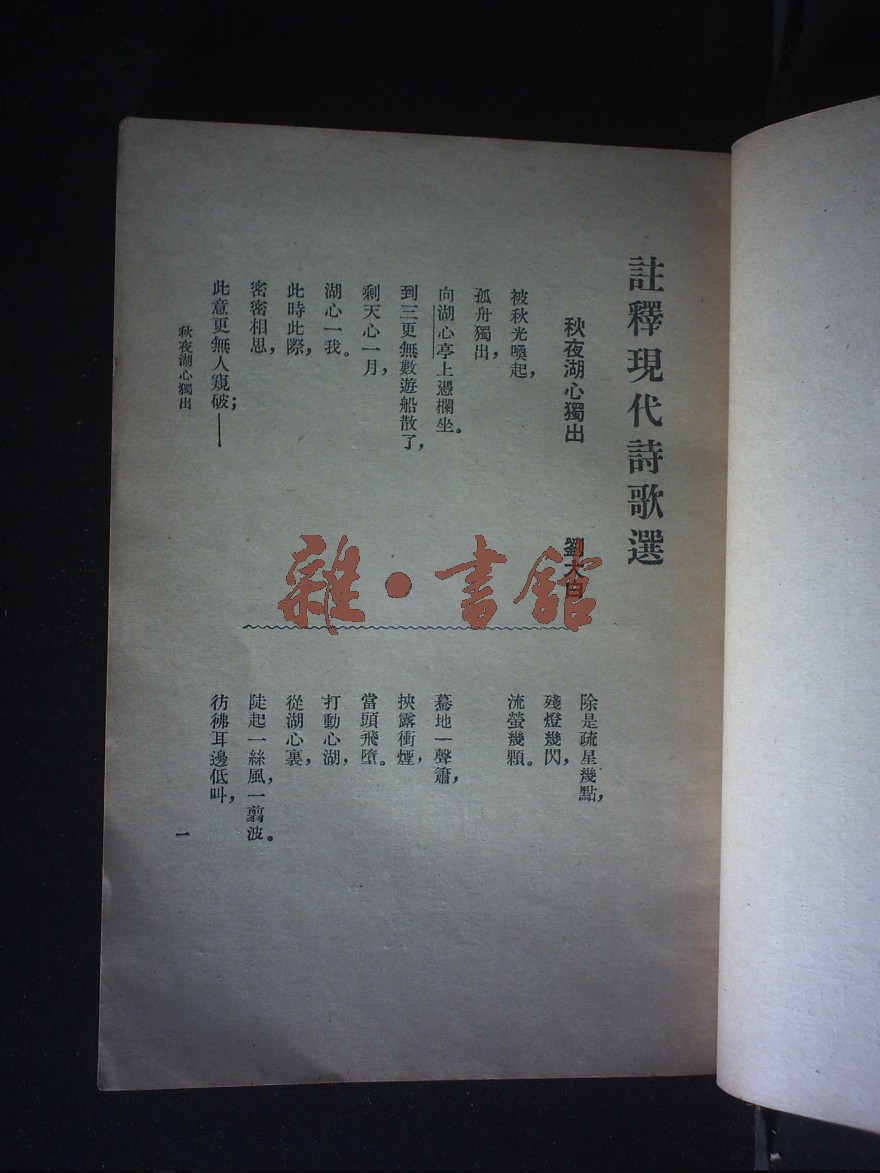 註釋現代詩歌選
秋夜湖心獨出
劉大白
被秋光喚起，
孤舟獨出，
向湖心亭上憑欄坐。
到三更無數遊船散了，
剩天心一月，
湖心一我。
此時此際，
密密相思，
此意更無人窺破；——
除是疏星幾點，
殘燈幾閃，
流螢幾顆。
驀地一聲簫，
挾露衝煙，
當頭飛墮。
打動心湖，
從湖心裏，
陡起一絲風，一翦波。
彷彿耳邊低叫，
秋夜湖心獨出
一
雜·書館